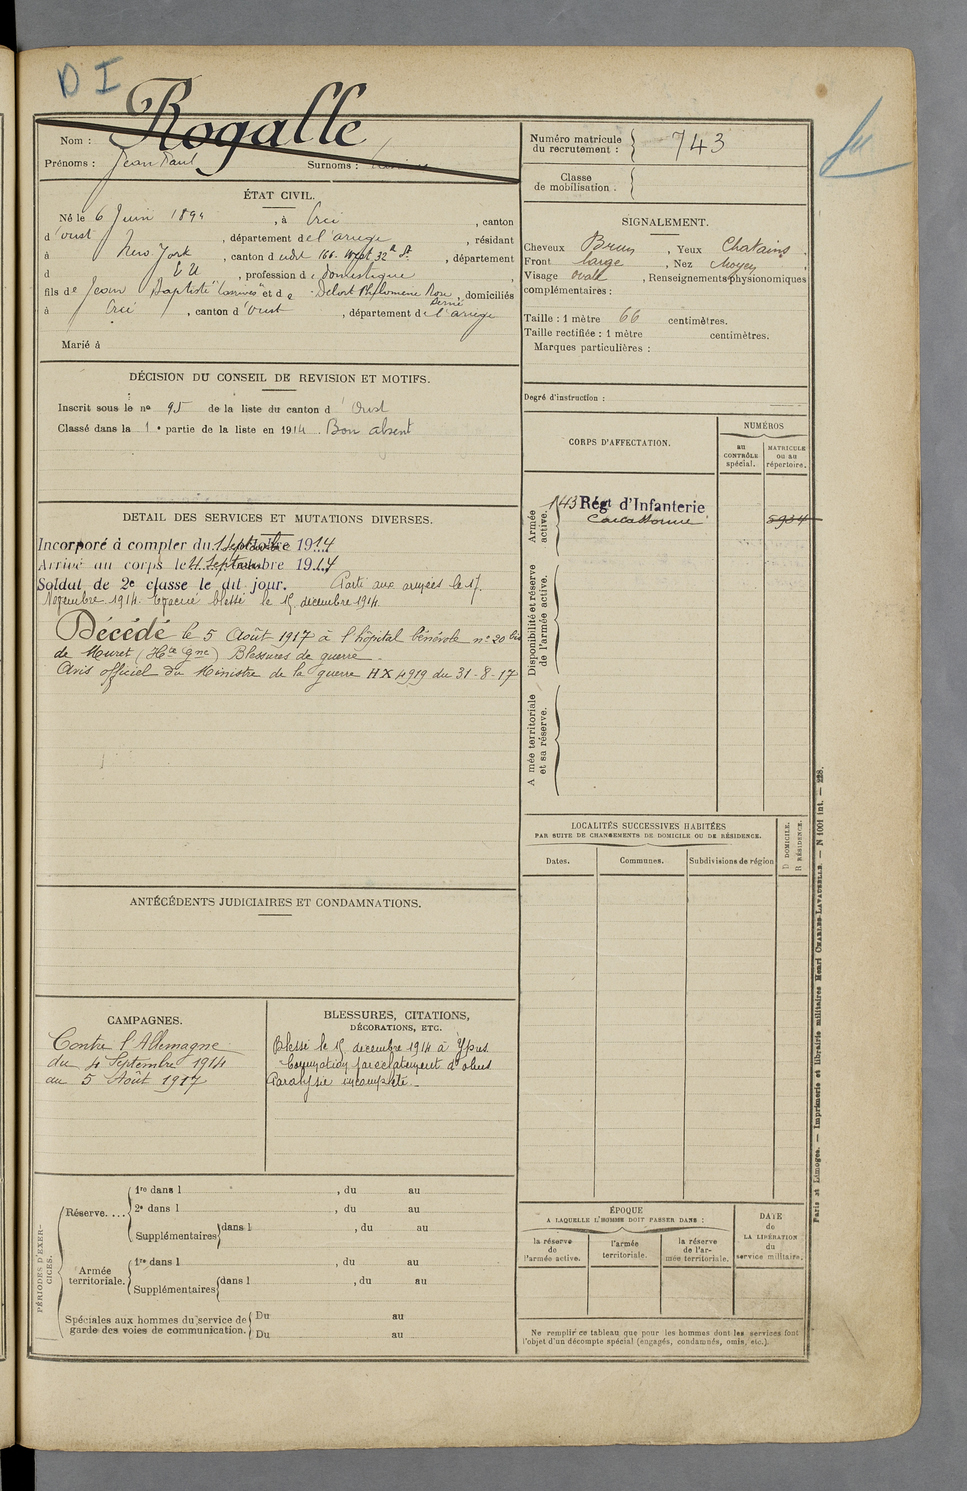 D I
Nom : Rogalle
Prénoms : Jean Paul Surnoms :
Numéro matricule du recrutement : 743
Classe de mobilisation :
ÉTAT CIVIL.
Né le 6 Juin 1894, à Ercé, canton
d'oust, département de l'ariege, résidant
à New York, canton d 166 West 32d St., département
d E U, profession de domestique,
fils de Jean Baptiste "Carrives" et de Delort Philomène Ron, domiciliés
Dernié
à Ercé, canton d'oust, département de l'ariege
Marié à
SIGNALEMENT.
Cheveux Brun, Yeux Chatains
Front large, Nez Moyen,
Visage ovale, Renseignements physionomiques
complémentaires :
Taille : 1 mètre 66 centimètres.
Taille rectifiée : 1 mètre centimètres.
Marques particulières :
Degré d'instruction :
DÉCISION DU CONSEIL DE REVISION ET MOTIFS.
Inscrit sous le no 95 de la liste du canton d'Oust
Classé dans la 1e partie de la liste en 1914. Bon absent
CORPS D'AFFECTATION.
NUMÉROS
au CONTRÔLE spécial.
MATRICULE ou au répertoire.
Armée active.
143 Régt d'Infanterie
Carcassonne
5934
Disponibilité et réserve de l'armée active.
A mée territoriale et sa réserve.
DETAIL DES SERVICES ET MUTATIONS DIVERSES.
Incorporé à compter du 1 Septembre 1914
Arrivé au corps le 4 Septembre 1914
Soldat de 2e classe le dit jour. Parti aux armées le 17
Novembre 1914. Evacué blessé le 15 decembre 1914.
Décédé le 5 Août 1917 à l'hôpital bénévole no 20 bis
de Muret (Hte Gne) Blessures de guerre.
Avis officiel du Ministre de la guerre HX 4919 du 31-8-17
LOCALITÉS SUCCESSIVES HABITÉES
PAR SUITE DE CHANGEMENTS DE DOMICILE OU DE RÉSIDENCE.
D DOMICILE.
R RÉSIDENCE.
Dates. Communes. Subdivisions de région
ANTÉCÉDENTS JUDICIAIRES ET CONDAMNATIONS.
CAMPAGNES.
Contre l'Allemagne
du 4 Septembre 1914
au 5 Août 1917
BLESSURES, CITATIONS,
DÉCORATIONS, ETC.
Blessé le 15 decembre 1914 à Ypres
Commotion par éclatement d'obus
Paralysie incomplète
PÉRIODES D'EXERCICES.
Réserve....
1re dans l , du au
2e dans l , du au
Supplémentaires dans l , du au
Armée territoriale.
1re dans l , du au
Supplémentaires dans l , du au
Spéciales aux hommes du service de garde des voies de communication.
Du au
Du au
ÉPOQUE
A LAQUELLE L'HOMME DOIT PASSER DANS :
la réserve de l'armée active.
l'armée territoriale.
la réserve de l'armée territoriale.
DATE de LA LIBÉRATION du service militaire.
Ne remplir ce tableau que pour les hommes dont les services font
l'objet d'un décompte spécial (engagés, condamnés, omis, etc.).
Paris et Limoges. — Imprimerie et librairie militaires Henri CHARLES-LAVAUZELLE. — N 1001 int. — 228.